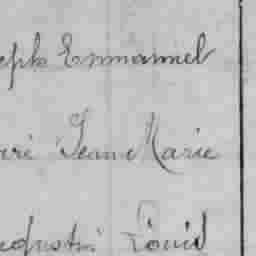 eph Emmanuel
ré Jean Marie
gustin Louis